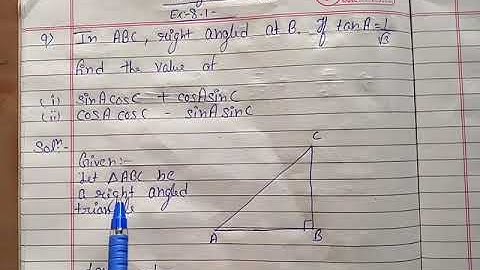 Ex-8.1-
9) In ABC, right angled at B. If tanA = 1/√3
find the value of
(i) sinA cosC + cosA sinC
(ii) cosA cosC - sinA sinC
Sol:-
Given:-
Let △ABC be
a right angled
triangle
C
A
B